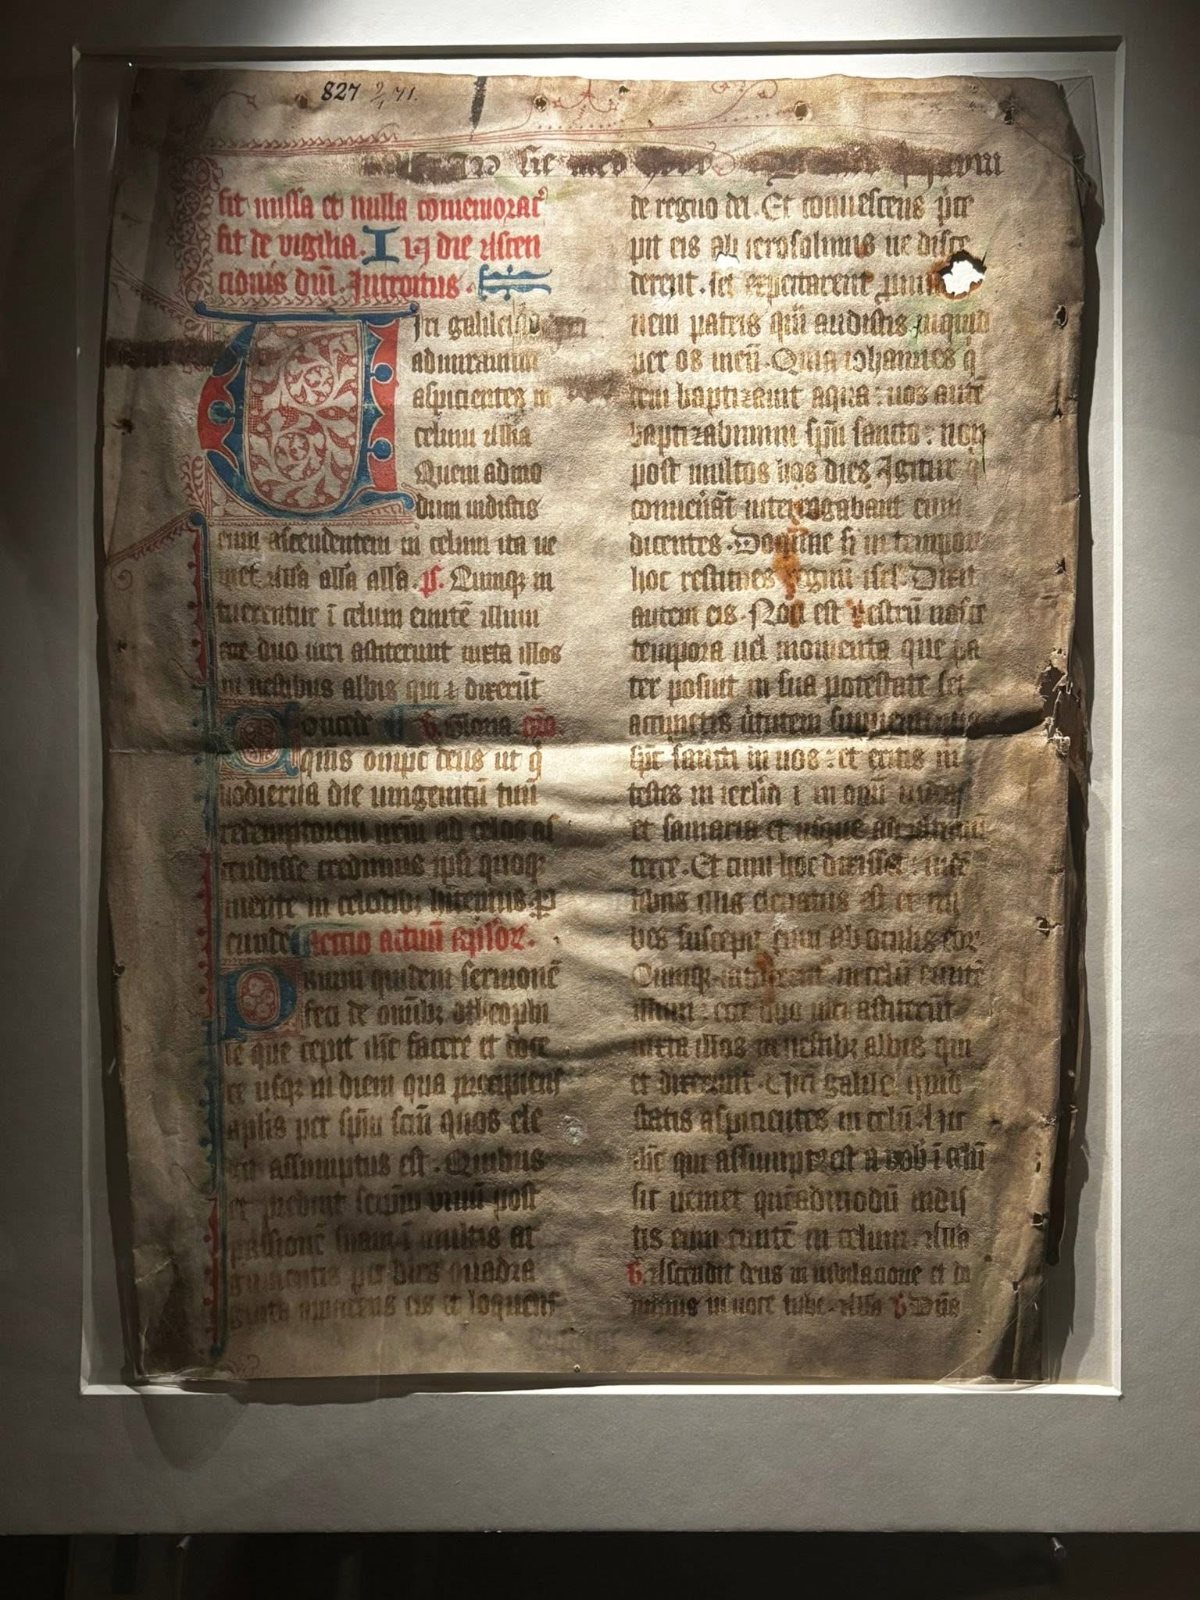 827 2/4 71.
fit missa et nulla comemorat᷒
fit de vigilia. In die ascen
cionis dni̅. Introitus.
Uiri galilei
admiramini
aspicientes in
celum al̅l̅a
Quem admo
dum uidistis
eum ascendentem in celum ita ue
niet al̅l̅a al̅l̅a al̅l̅a. ps. Cumqꝫ in
tuerentur i̅ celum eunte̅ illum
ecce duo uiri astiterunt iuxta illos
in uestibus albis qui ⁊ dixeru̅t
Gloria.
Concede
q̅s omp̅c deus ut q̅
hodierna die unigenitu̅ tuu̅
redemptorem nr̅m ad celos as
cendisse credimus ipsi quoqꝫ
mente in celestibꝫ h̅itemus. ꝑ
eunde̅ Lectio actuu̅ ap̅lor̅.
Primu̅ quidem sermone̅
feci de om̅ibꝫ o theophi
le que cepit ih̅c facere et doce
re usqꝫ in diem qua precipiens
aplis per sp̅m sc̅m quos ele
git assumptus est. Quibus
et prebuit seip̅m uiuu̅ post
passione̅ suam i̅ multis ar
gumentis per dies quadra
ginta apparens eis et loquens
de regno dei. Et conuescens p̅ce
pit eis ab ierosolimis ne disce
derent. set expectarent ꝓmis
nem patris qua̅ audistis inquid
per os meu̅. Quia iohannes q̅
dem baptizauit aqua: uos aute̅
baptizabimini sp̅u sancto: non
post multos hos dies. Igitur q̅
conuenera̅t interrogabant eum
dicentes. Domine si in tempore
hoc restitues regnu̅ isr̅l. Dixit
autem eis. Non est uestru̅ nosce
tempora uel momenta que pa
ter posuit in sua potestate set
accipietis uirtutem superuenientis
sp̅c sancti in uos: et eritis m̅
testes in ierl̅m ⁊ in om̅i iudea
et samaria et usque ad ultimu̅
terre. Et cum hoc dixisset: uide̅
tibus illis eleuatus est et nu
bes suscepit eum ab oculis eor̅.
Cumqꝫ intuerent̅ in celu̅ eunte̅
illum: ecce duo uiri astiteru̅t
iuxta illos in uestibꝫ albis qui
et dixerunt. Uiri galilei quid
statis aspicientes in celu̅. Hic
ih̅c qui assumptꝰ est a uob̅ i̅ celu̅
sic ueniet que̅admodu̅ uidis
tis eum eunte̅ in celum. al̅l̅a
℣. Ascendit deus in iubilatione et do
minus in uoce tube. al̅l̅a ℣ Dn̅s